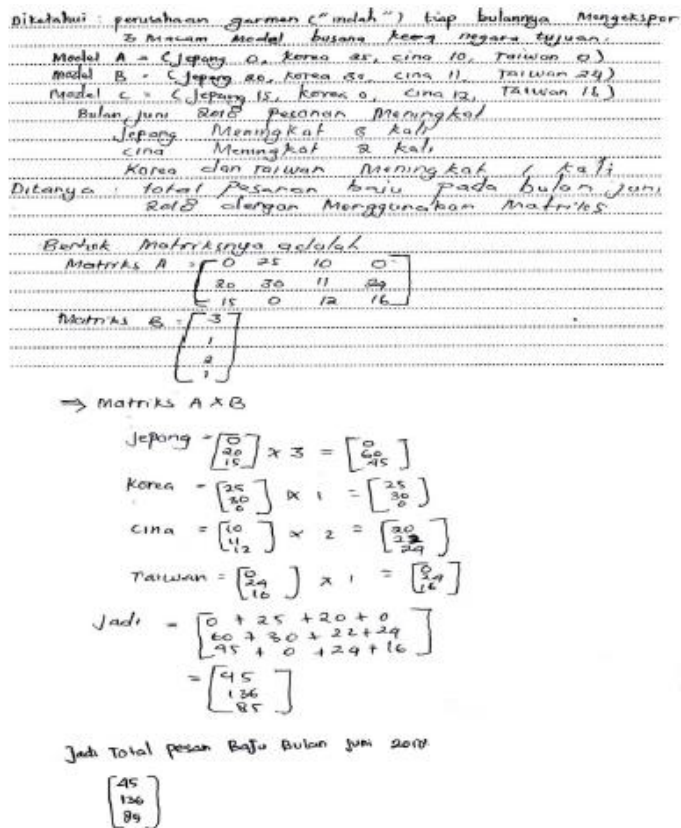 Diketahui : perusahaan garmen ("indah") tiap bulannya Mengekspor
3 Macam Model busana keempat negara tujuan.
Model A = (Jepang 0, korea 25, cina 10, Taiwan 0)
model B = (Jepang 20, korea 30, cina 11, Taiwan 24)
Model C = (Jepang 15, korea 0, cina 12, Taiwan 16)
Bulan Juni 2018 pesanan Meningkat
Jepang Meningkat 3 kali
cina Meningkat 2 kali
Korea dan Taiwan Meningkat 1 kali
Ditanya : total pesanan baju pada bulan juni
2018 dengan Menggunakan Matriks
Bentuk Matriksnya adalah
Matriks A = [0 25 10 0
20 30 11 24
15 0 12 16]
Matriks B = [3
1
2
1]
⇒ Matriks A x B
Jepang = [0 20 15] x 3 = [0 60 45]
Korea = [25 30 0] x 1 = [25 30 0]
Cina = [10 11 12] x 2 = [20 22 24]
Taiwan = [0 24 16] x 1 = [0 24 16]
Jadi = [0 + 25 + 20 + 0
60 + 30 + 22 + 24
45 + 0 + 24 + 16]
= [45
136
85]
Jadi Total pesan Baju Bulan Juni 2018
[45
136
89]